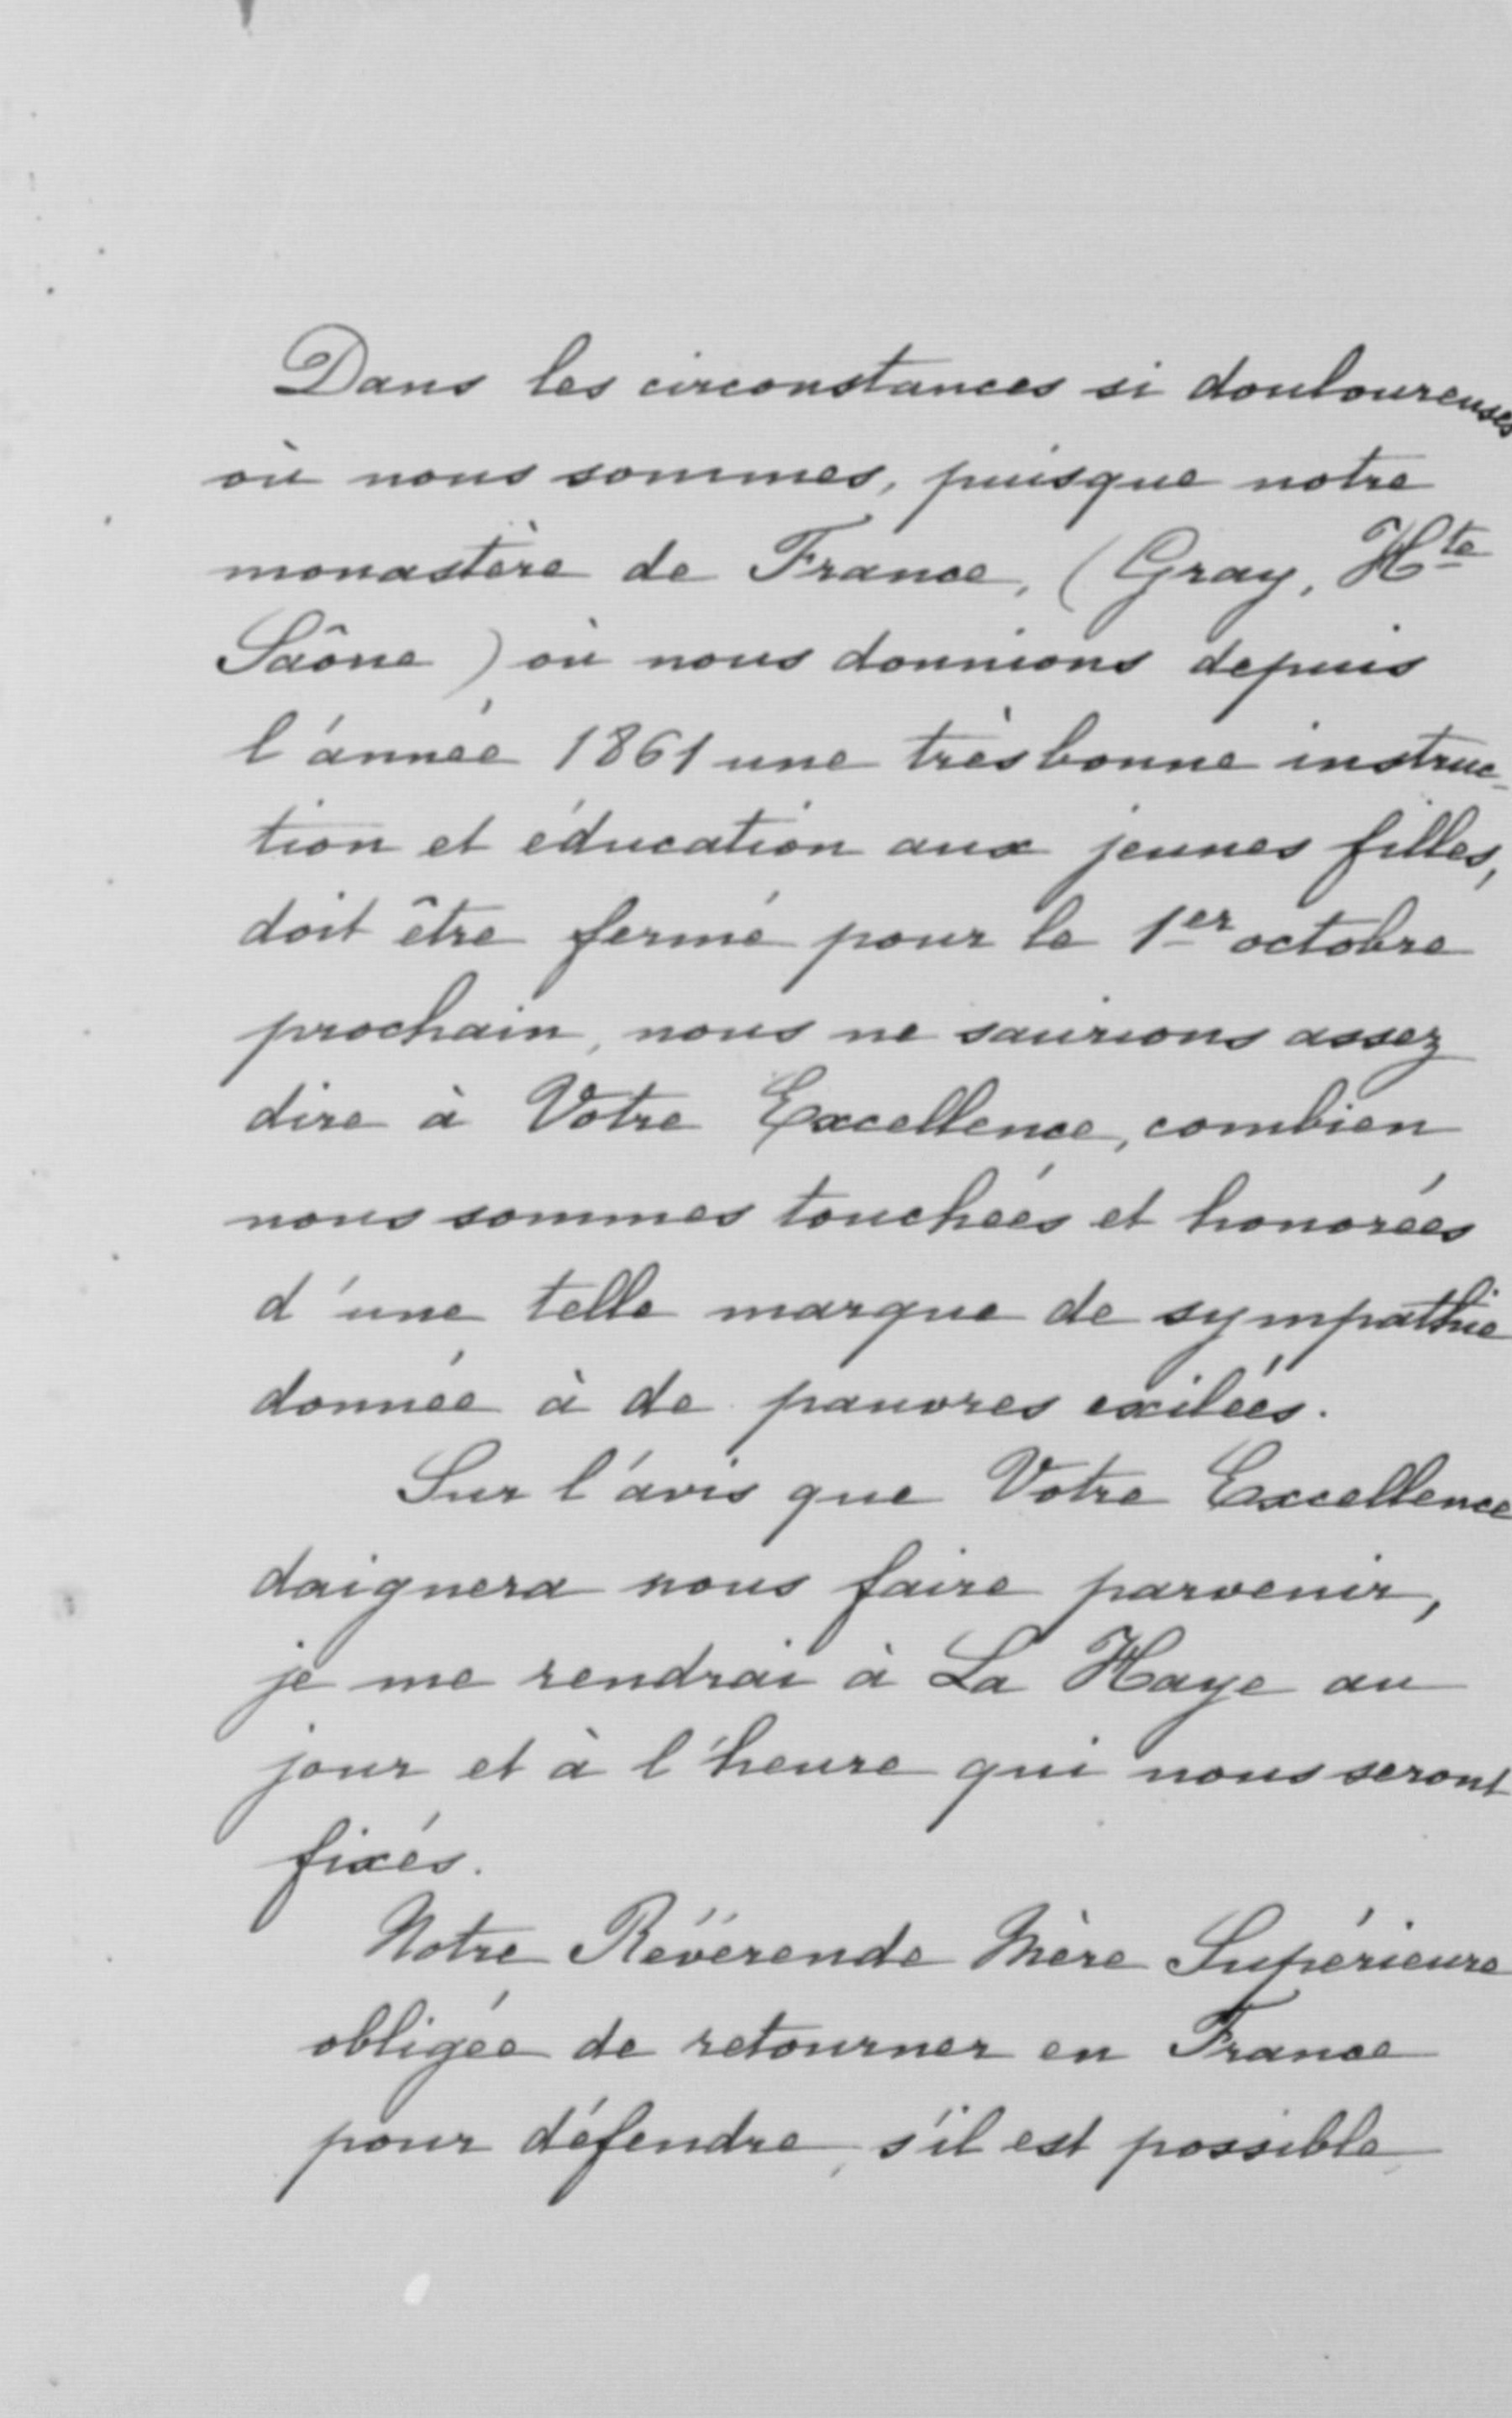 Dans les circonstances si douloureuses
où nous sommes, puisque notre
monastère de France, (Gray, Hte
Saône) où nous donnions depuis
l'année 1861 une très bonne instruc-
tion et éducation aux jeunes filles,
doit être fermé pour le 1er octobre
prochain, nous ne saurions assez
dire à Votre Excellence, combien
nous sommes touchées et honorées
d'une telle marque de sympathie
donnée à de pauvres exilées.
Sur l'avis que Votre Excellence
daignera nous faire parvenir,
je me rendrai à La Haye au
jour et à l'heure qui nous seront
fixés.
Notre Révérende Mère Supérieure
obligée de retourner en France
pour défendre, s'il est possible,